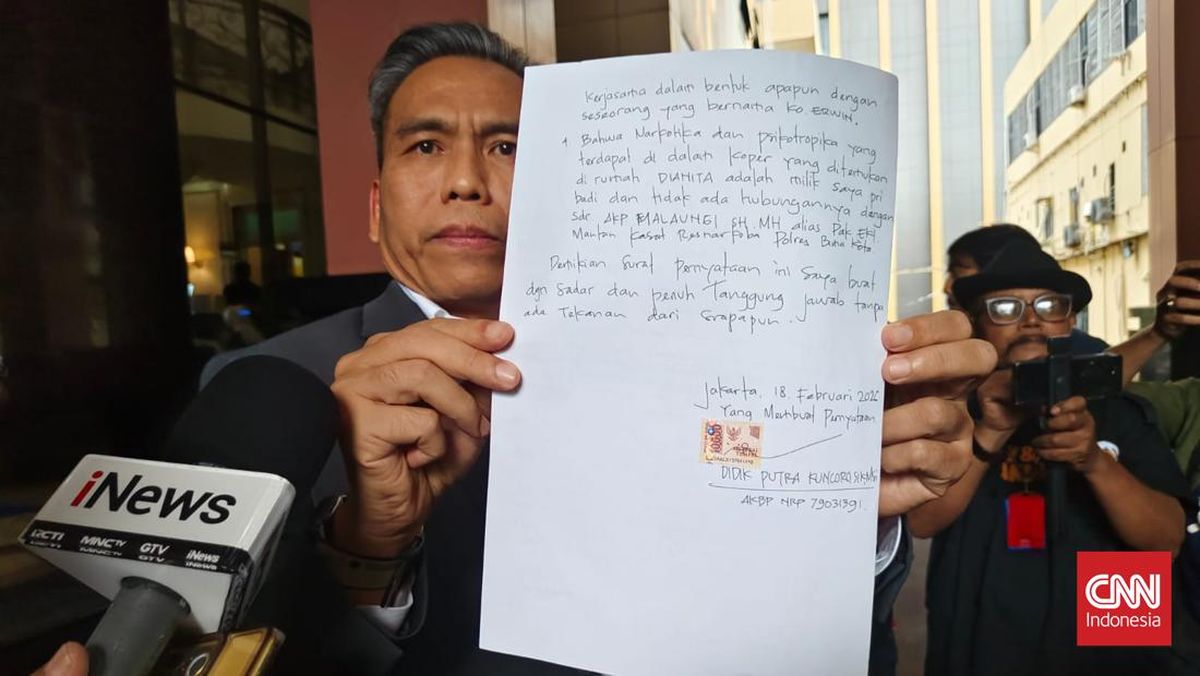 Kerjasama dalam bentuk apapun dengan
seseorang yang bernama KO. ERWIN.
Bahwa Narkotika dan psikotropika yang
terdapat di dalam koper yang ditemukan
di rumah DIANITA adalah milik saya pri
badi dan tidak ada hubungannya dengan
sdr AKP MALAUNGI SH, MH alias Pak EKI
Mantan Kasat Resnarkoba Polres Bima Kota
Demikian Surat Pernyataan ini Saya buat
dgn Sadar dan penuh Tanggung jawab tanpa
ada Tekanan dari Siapapun.
Jakarta, 18 Februari 2026
Yang Membuat Pernyataan
10000
DIDIK PUTRA KUNCORO SIK, MSi
AKBP NRP 79031391.
iNews
RCTI MNCTV GTV iNews
CNN
Indonesia